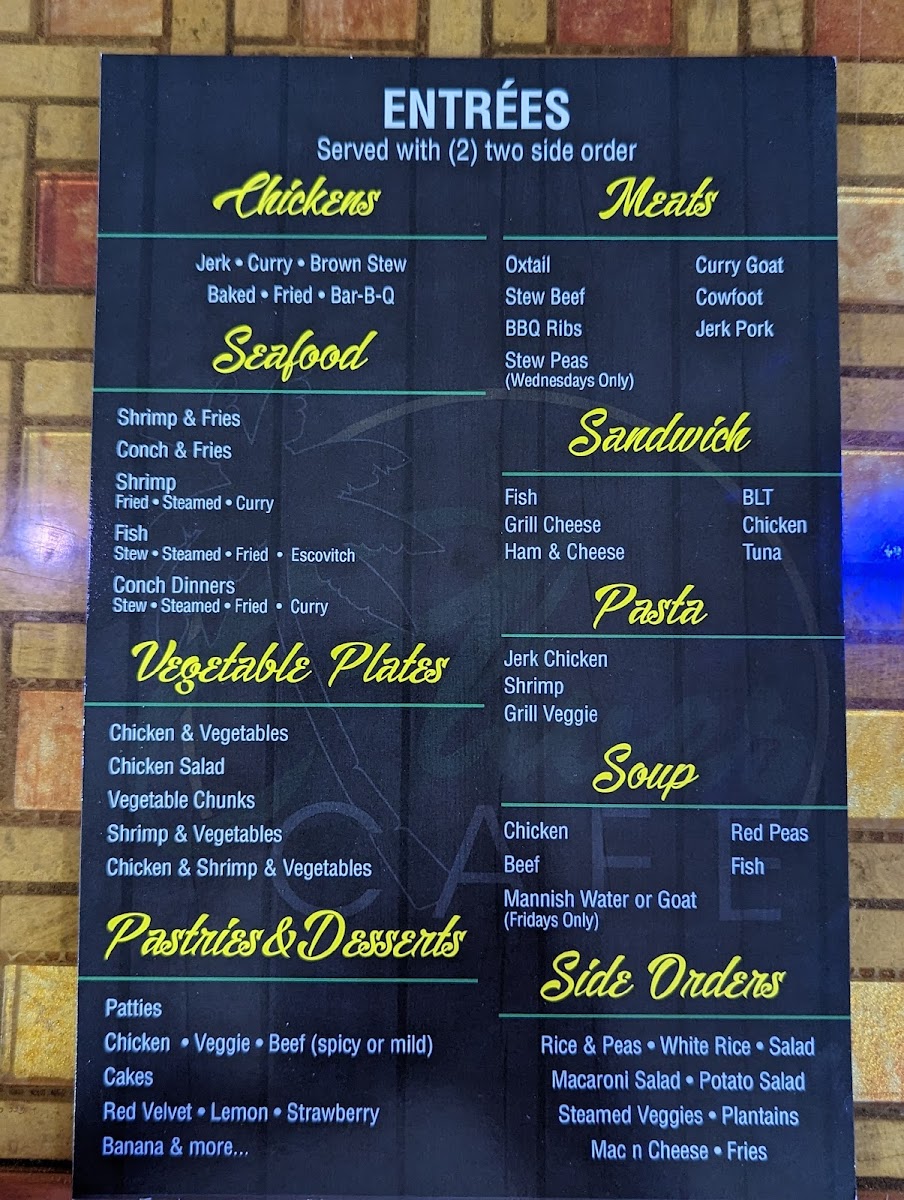 ENTRÉES
Served with (2) two side order
Chickens
Jerk • Curry • Brown Stew
Baked • Fried • Bar-B-Q
Seafood
Shrimp & Fries
Conch & Fries
Shrimp
Fried • Steamed • Curry
Fish
Stew • Steamed • Fried • Escovitch
Conch Dinners
Stew • Steamed • Fried • Curry
Vegetable Plates
Chicken & Vegetables
Chicken Salad
Vegetable Chunks
Shrimp & Vegetables
Chicken & Shrimp & Vegetables
Pastries & Desserts
Patties
Chicken • Veggie • Beef (spicy or mild)
Cakes
Red Velvet • Lemon • Strawberry
Banana & more...
Meats
Oxtail Curry Goat
Stew Beef Cowfoot
BBQ Ribs Jerk Pork
Stew Peas
(Wednesdays Only)
Sandwich
Fish BLT
Grill Cheese Chicken
Ham & Cheese Tuna
Pasta
Jerk Chicken
Shrimp
Grill Veggie
Soup
Chicken Red Peas
Beef Fish
Mannish Water or Goat
(Fridays Only)
Side Orders
Rice & Peas • White Rice • Salad
Macaroni Salad • Potato Salad
Steamed Veggies • Plantains
Mac n Cheese • Fries
CAFE